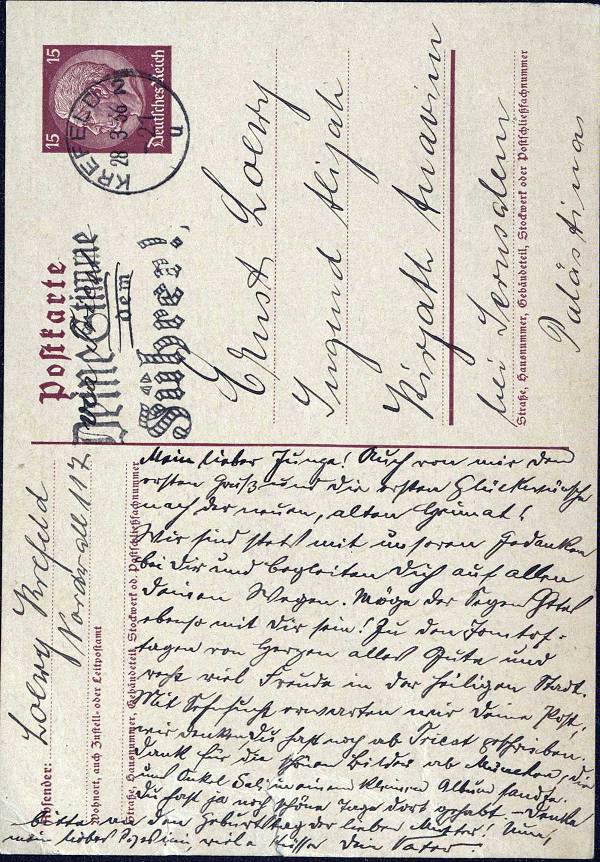 Postkarte
15 15
Deutsches Reich
KREFELD 2
28.3.36
21
u
Deine Stimme
dem
Führer!
Ernst Loewy
Jugend Alijah
Kirjath Anavim
bei Jerusalem
Straße, Hausnummer, Gebäudeteil, Stockwerk oder Postschließfachnummer
Palästina
Absender: Loewy Krefeld
Wohnort, auch Zustell- oder Leitpostamt
Nordwall 117
Straße, Hausnummer, Gebäudeteil, Stockwerk od. Postschließfachnummer
Mein lieber Junge! Auch von mir den
ersten Gruß und die ersten Glückwünsche
nach der neuen, alten Heimat!
Wir sind stets mit unseren Gedanken
bei Dir und begleiten Dich auf allen
Deinen Wegen. Möge der Segen Gottes
ebenso mit Dir sein! Zu den Jomtof-
tagen von Herzen alles Gute und
recht viel Freude in der heiligen Stadt.
Mit Sehnsucht erwarten wir Deine Post,
wir denken Du hast noch ab Triest geschrieben.
Dank für die schönen Bilder ab München, die
uns Onkel Sali in einem kleinen Album sandte.
Du hast ja noch schöne Tage dort gehabt. Denke
bitte an den Geburtstag der lieben Mutter! Nun,
mein lieber viele Küsse Dein Vater.